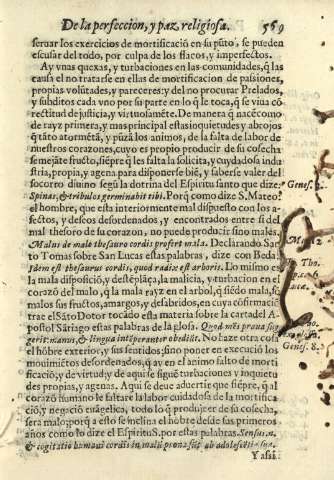 De la perfeccion, y paz religiosa. 569
seruar los exercicios de mortificació en su pũto, se pueden
escusar del todo, por culpa de los flacos, y imperfectos.
Ay vnas quexas, y turbaciones en las comunidades, q̃ las
causa el no tratarse en ellas de mortificacion de passiones,
propias volũtades, y pareceres: y del no procurar Prelados,
y subditos cada vno por su parte en lo q̃ le toca, q̃ se viua cõ
rectitud de justicia, y virtuosamẽte. De manera q̃ nacẽ como
de rayz primera, y mas principal estas inquietudes, y abrojos
q̃ tãto atormẽtã, y pũzã los animos, de la falta de labor de
nuestros coraçones, cuyo es propio producir de su cosecha
semejãte fruto, siẽpre q̃ les falta la solicita, y cuydadosa indu
stria, propia, y agena para disponerse biẽ, y saberse valer del
socorro diuino segũ la dotrina del Espiritu santo que dize:
Spinas, & tribulos germinabit tibi. Porq̃ como dize S. Mateo:
Genes. 3.
el hombre, que esta interiormente mal dispuesto con los a-
fectos, y desseos desordenados, y encontrados entre si del
mal thesoro de su coraçon, no puede producir sino males.
Malus de malo thesauro cordis profert mala. Declarando San
to Tomas sobre San Lucas estas palabras, dize con Beda:
Idem est thesaurus cordis, quod radix est arboris. Lo mismo es
la mala disposiciõ, y destẽplãça, la malicia, y turbacion en el
coraçõ del malo, q̃ la mala rayz en el arbol, q̃ siẽdo mala, sõ
malos sus frutos, amargos, y desabridos, en cuya cõfirmaciõ
trae el Sãto Dotor tocãdo esta materia sobre la carta del A-
postol Sãtiago estas palabras de la glosa. Quod mẽs praua sug
gerit: manus, & lingua intẽperanter obediũt. No haze otra cosa
el hõbre exterior, y sus sentidos; sino poner en execuciõ los
mouimiẽtos desordenados, q̃ ay en el animo falto de mortifi
caciõ, y de virtud; y de aqui se siguẽ turbaciones y inquietu
des propias, y agenas. Aqui se deue aduertir que siẽpre, q̃ al
coraçõ humano le faltare la labor cuidadosa de la mortifica
ciõ, y negociõ euãgelica, todo lo q̃ produxere de su cosecha,
sera malo; porq̃ a esto se inclina el hõbre desde sus primeros
años como lo dize el Espiritu S. por estas palabras. Sensus, n.
Genes. 8.
& cogitatio humani cordis in malũ prona sũt ab adolescẽtia sua.
Y assi